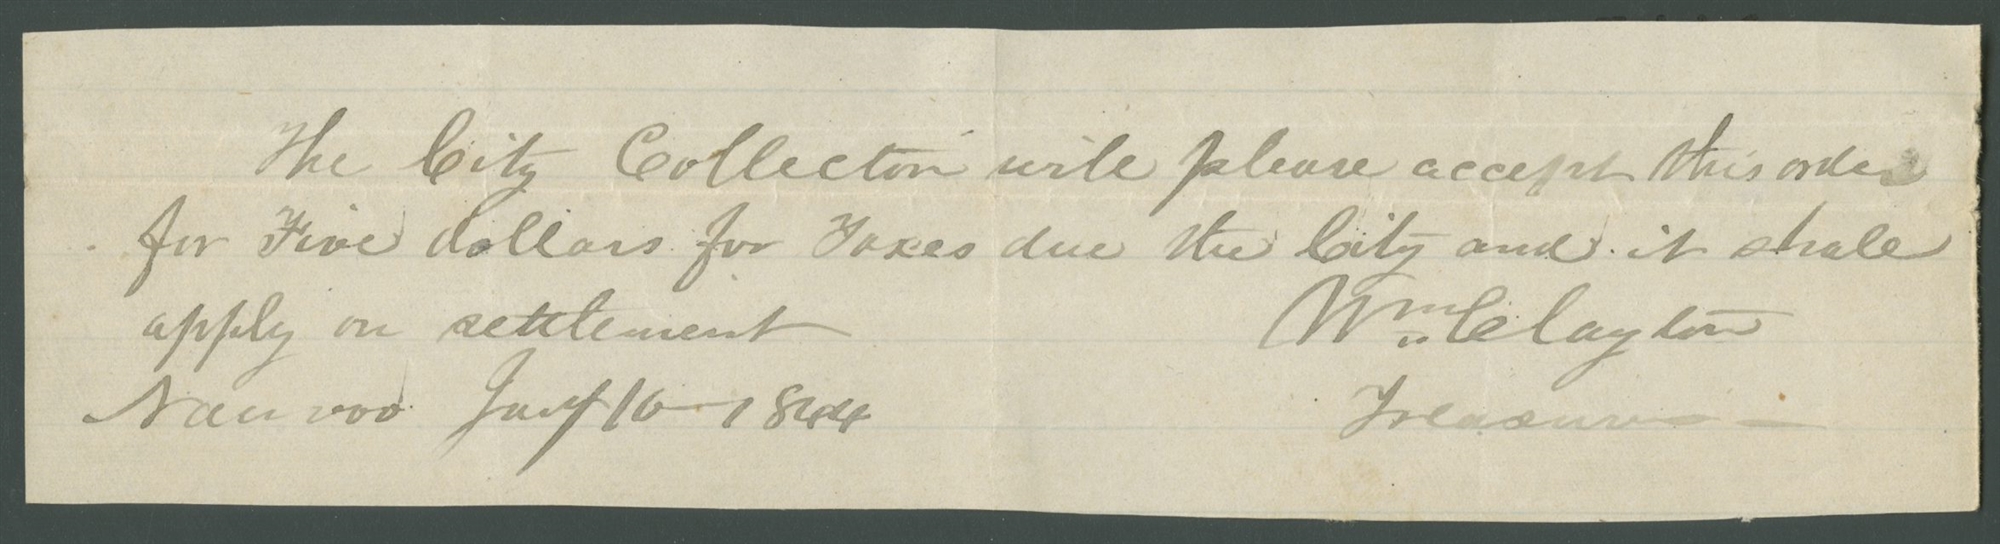 The City Collector will please accept this order
for Five dollars for Taxes due the City and it shall
apply on settlement Wm Clayton
Nauvoo Jany 16 1844 Treasurer